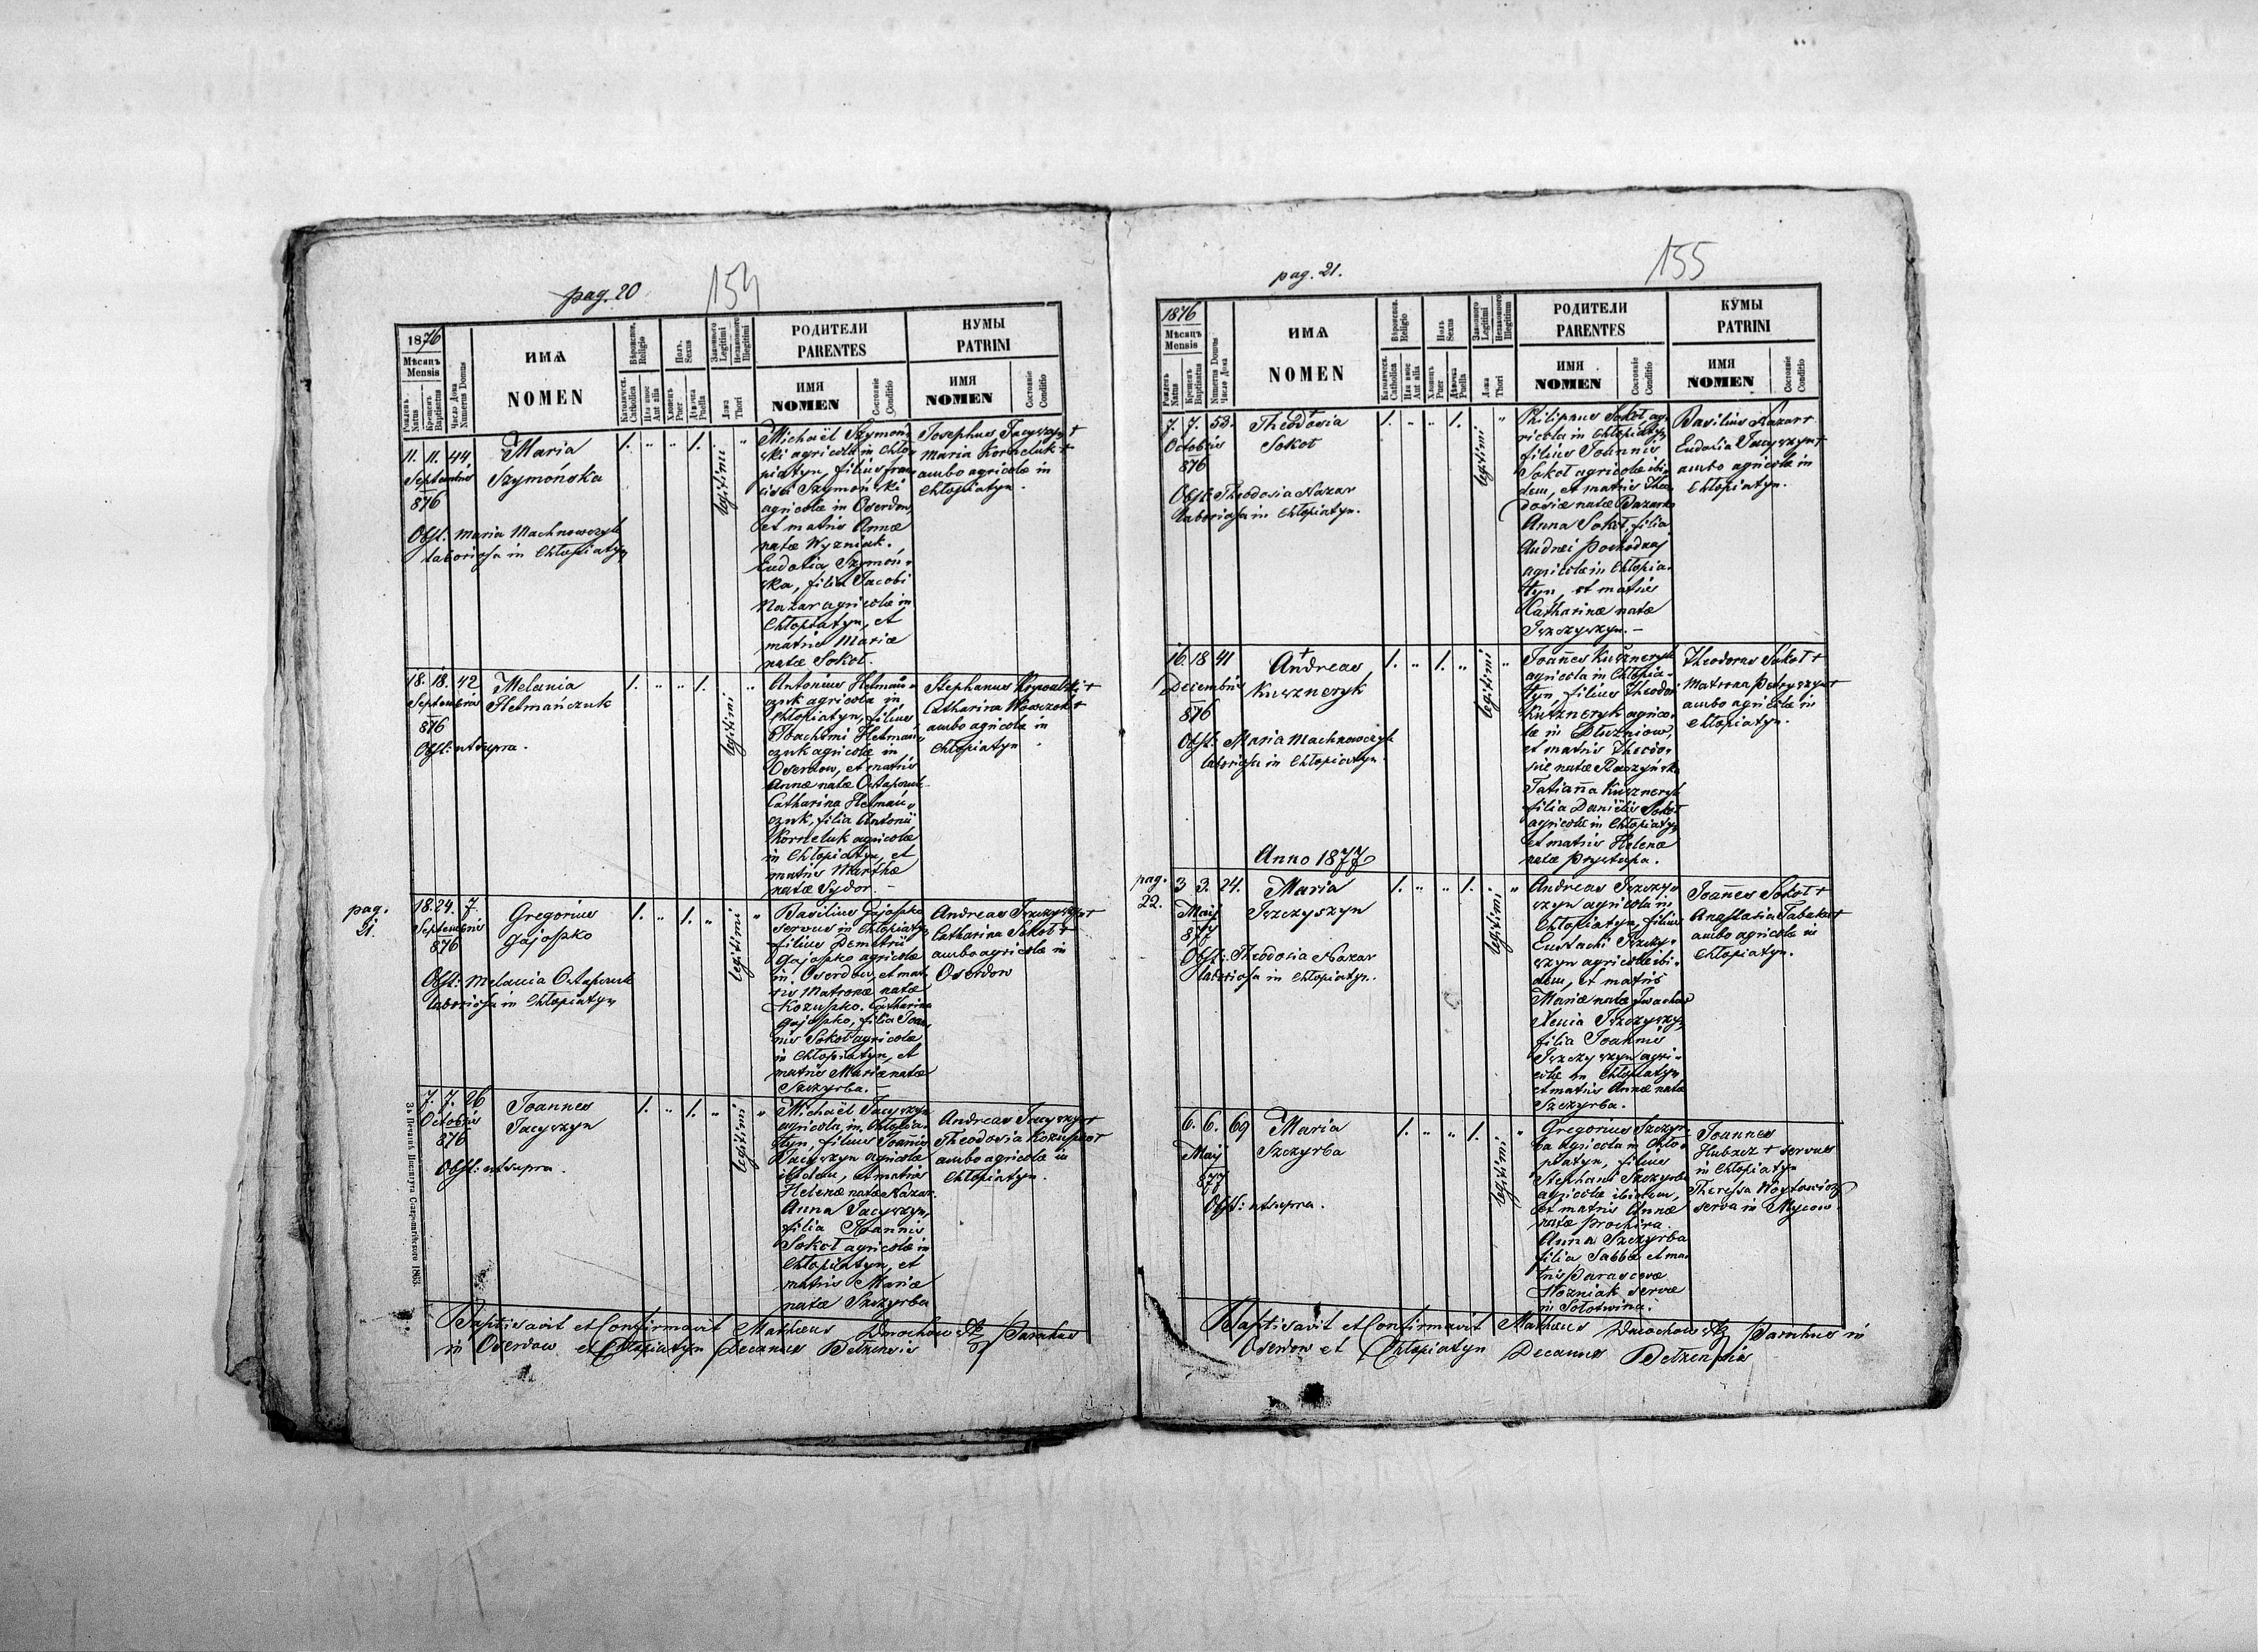 pag. 20
154
1876
Мѣсяцъ
Mensis
Рожденъ
Natus
Крещенъ
Baptisatus
Число Дома
Numerus Domus
ИМѦ
NOMEN
Вѣроисповѣд.
Religio
Католическ.
Catholica
Или иное
Aut alia
Полъ
Sexus
Хлопецъ
Puer
Дѣвочка
Puella
Законного
Legitimi
Незаконного
Illegitimi
Ложа
Thori
РОДИТЕЛИ
PARENTES
ИМЯ
NOMEN
Состояніе
Conditio
КУМЫ
PATRINI
ИМЯ
NOMEN
Состояніе
Conditio
11. 11. 44
Septembris
876
Maria
Szymońska
1. " " 1.
legitimi
"
Obst: Maria Machnowczyk
laboriosa in Chłopiatyn
Michaël Szymoń-
ski agricola in Chło-
piatyn, filius Fran-
cisci Szymoński
agricolæ in Oserdow,
et matris Annæ
natæ Wyzniak.
Eudokia Szymoń-
ska, filia Jacobi
Nazar agricolæ in
Chłopiatyn, et
matris Mariæ
natæ Sokoł.
Josephus Jacyszyn +
Maria Korneluk +
ambo agricolæ in
Chłopiatyn.
18. 18. 42
Septembris
876
Obst: ut supra.
Melania
Hetmańczuk
1. " " 1.
legitimi
"
Antonius Hetmań-
czuk agricola in
Chłopiatyn, filius
Joachimi Hetmań-
czuk agricolæ in
Oserdow, et matris
Annæ natæ Ostapczuk
Catharina Hetmań-
czuk, filia Antonii
Korneluk agricolæ
in Chłopiatyn, et
matris Marthæ
natæ Sydor. —
Stephanus Krywulski +
Catharina Wowczok +
ambo agricolæ in
Chłopiatyn
pag.
21.
18. 24. 7.
Septembris
876
Gregorius
Gajosko
1. " 1. "
legitimi
"
Obst: Melania Ostapczuk
laboriosa in Chłopiatyn
Basilius Gajosko
servus in Chłopiatyn
filius Demetrii
Gajosko agricolæ
in Oserdow, et mat-
ris Matronæ natæ
Kozusko. Catharina
Gajosko, filia Joan-
nis Sokoł agricolæ
in Chłopiatyn, et
matris Mariæ natæ
Szczyrba. —
Andreas Iszczyszyn +
Catharina Sokoł +
ambo agricolæ in
Oserdow
7. 7. 26
Octobris
876
Obst: ut supra.
Joannes
Jacyszyn
1. " 1. "
legitimi
"
Michaël Jacyszyn
agricola in Chłopia-
tyn, filius Joannis
Jacyszyn agricolæ
ibidem, et matris
Helenæ natæ Nazar.
Anna Jacyszyn,
filia Joannis
Sokoł agricolæ in
Chłopiatyn, et
matris Mariæ
natæ Szczyrba
Andreas Jacyszyn +
Theodosia Kozusko +
ambo agricolæ in
Chłopiatyn.
Baptisavit et Confirmavit Mathæus Parochus
in Oserdow et Chłopiatyn Decanus Bełzensis
pag. 21.
155
1876
Мѣсяцъ
Mensis
Рожденъ
Natus
Крещенъ
Baptisatus
Numerus Domus
Число Дома
ИМѦ
NOMEN
Вѣроисповѣд.
Religio
Католическ.
Catholica
Или иное
Aut alia
Полъ
Sexus
Хлопецъ
Puer
Дѣвочка
Puella
Законного
Legitimi
Незаконного
Illegitimum
Ложа
Thori
РОДИТЕЛИ
PARENTES
ИМЯ
NOMEN
Состояніе
Conditio
КУМЫ
PATRINI
ИМЯ
NOMEN
Состояніе
Conditio
7. 7. 53.
Octobris
876
Theodosia
Sokoł
1. " " 1.
legitimi
"
Obst: Theodosia Nazar
laboriosa in Chłopiatyn.
Philippus Sokoł ag-
ricola in Chłopiatyn
filius Joannis
Sokoł agricolæ ibi-
dem, et matris Theo-
dosiæ natæ
Anna Sokoł, filia
Andrei Pochodzaj
agricolæ in Chłopia-
tyn, et matris
Catharinæ natæ
Iszczyszyn. —
Basilius Nazar +
Eudokia Jacyszyn +
ambo agricolæ in
Chłopiatyn.
16 18 41
Decembris
876
+
Andreas
Kuszneryk
1. " 1. "
legitimi
"
Obst: Maria Machnowczyk
laboriosa in Chłopiatyn.
Joannes Kuszneryk
agricola in Chłopia-
tyn filius Theodori
Kuszneryk agrico-
læ in Dłużniow,
et matris Theodo-
siæ natæ
Tatianna Kuszneryk
filia Daniëlis Sokoł
agricolæ in Chłopiatyn
et matris Helenæ
natæ Prystupa.
Theodorus Sokoł +
Matrona Petryszyn +
ambo agricolæ in
Chłopiatyn.
Anno 1877
pag.
22.
3 3. 24.
Maij
877
Maria
Iszczyszyn
1. " " 1.
legitimi
"
Obst: Theodosia Nazar
laboriosa in Chłopiatyn.
Andreas Iszczy-
szyn agricola in
Chłopiatyn, filius
Eustachi Iszczy-
szyn agricolæ ibi-
dem, et matris
Mariæ natæ Iwachow
Xenia Iszczyszyn
filia Joannis
Iszczyszyn agri-
colæ in Chłopiatyn
et matris Annæ natæ
Szczyrba.
Joannes Sokoł +
Anastasia Tabaka +
ambo agricolæ in
Chłopiatyn.
6. 6. 69
Maij
877
Obst: ut supra.
Maria
Szczyrba
1. " " 1.
legitimi
"
Gregorius Szczyr-
ba agricola in Chło-
piatyn, filius
Stephani Szczyrba
agricolæ ibidem,
et matris Annæ
natæ Prochira.
Anna Szczyrba
filia Sabbæ et ma-
tris Parascevæ
Nozniak servæ
in Sołotwina.
Joannes
Hubacz + servus
in Chłopiatyn
Theressa Woytowicz
serva in Mycow.
Baptisavit et Confirmavit Mathæus Parochus in
Oserdow et Chłopiatyn Decanus Bełzensis